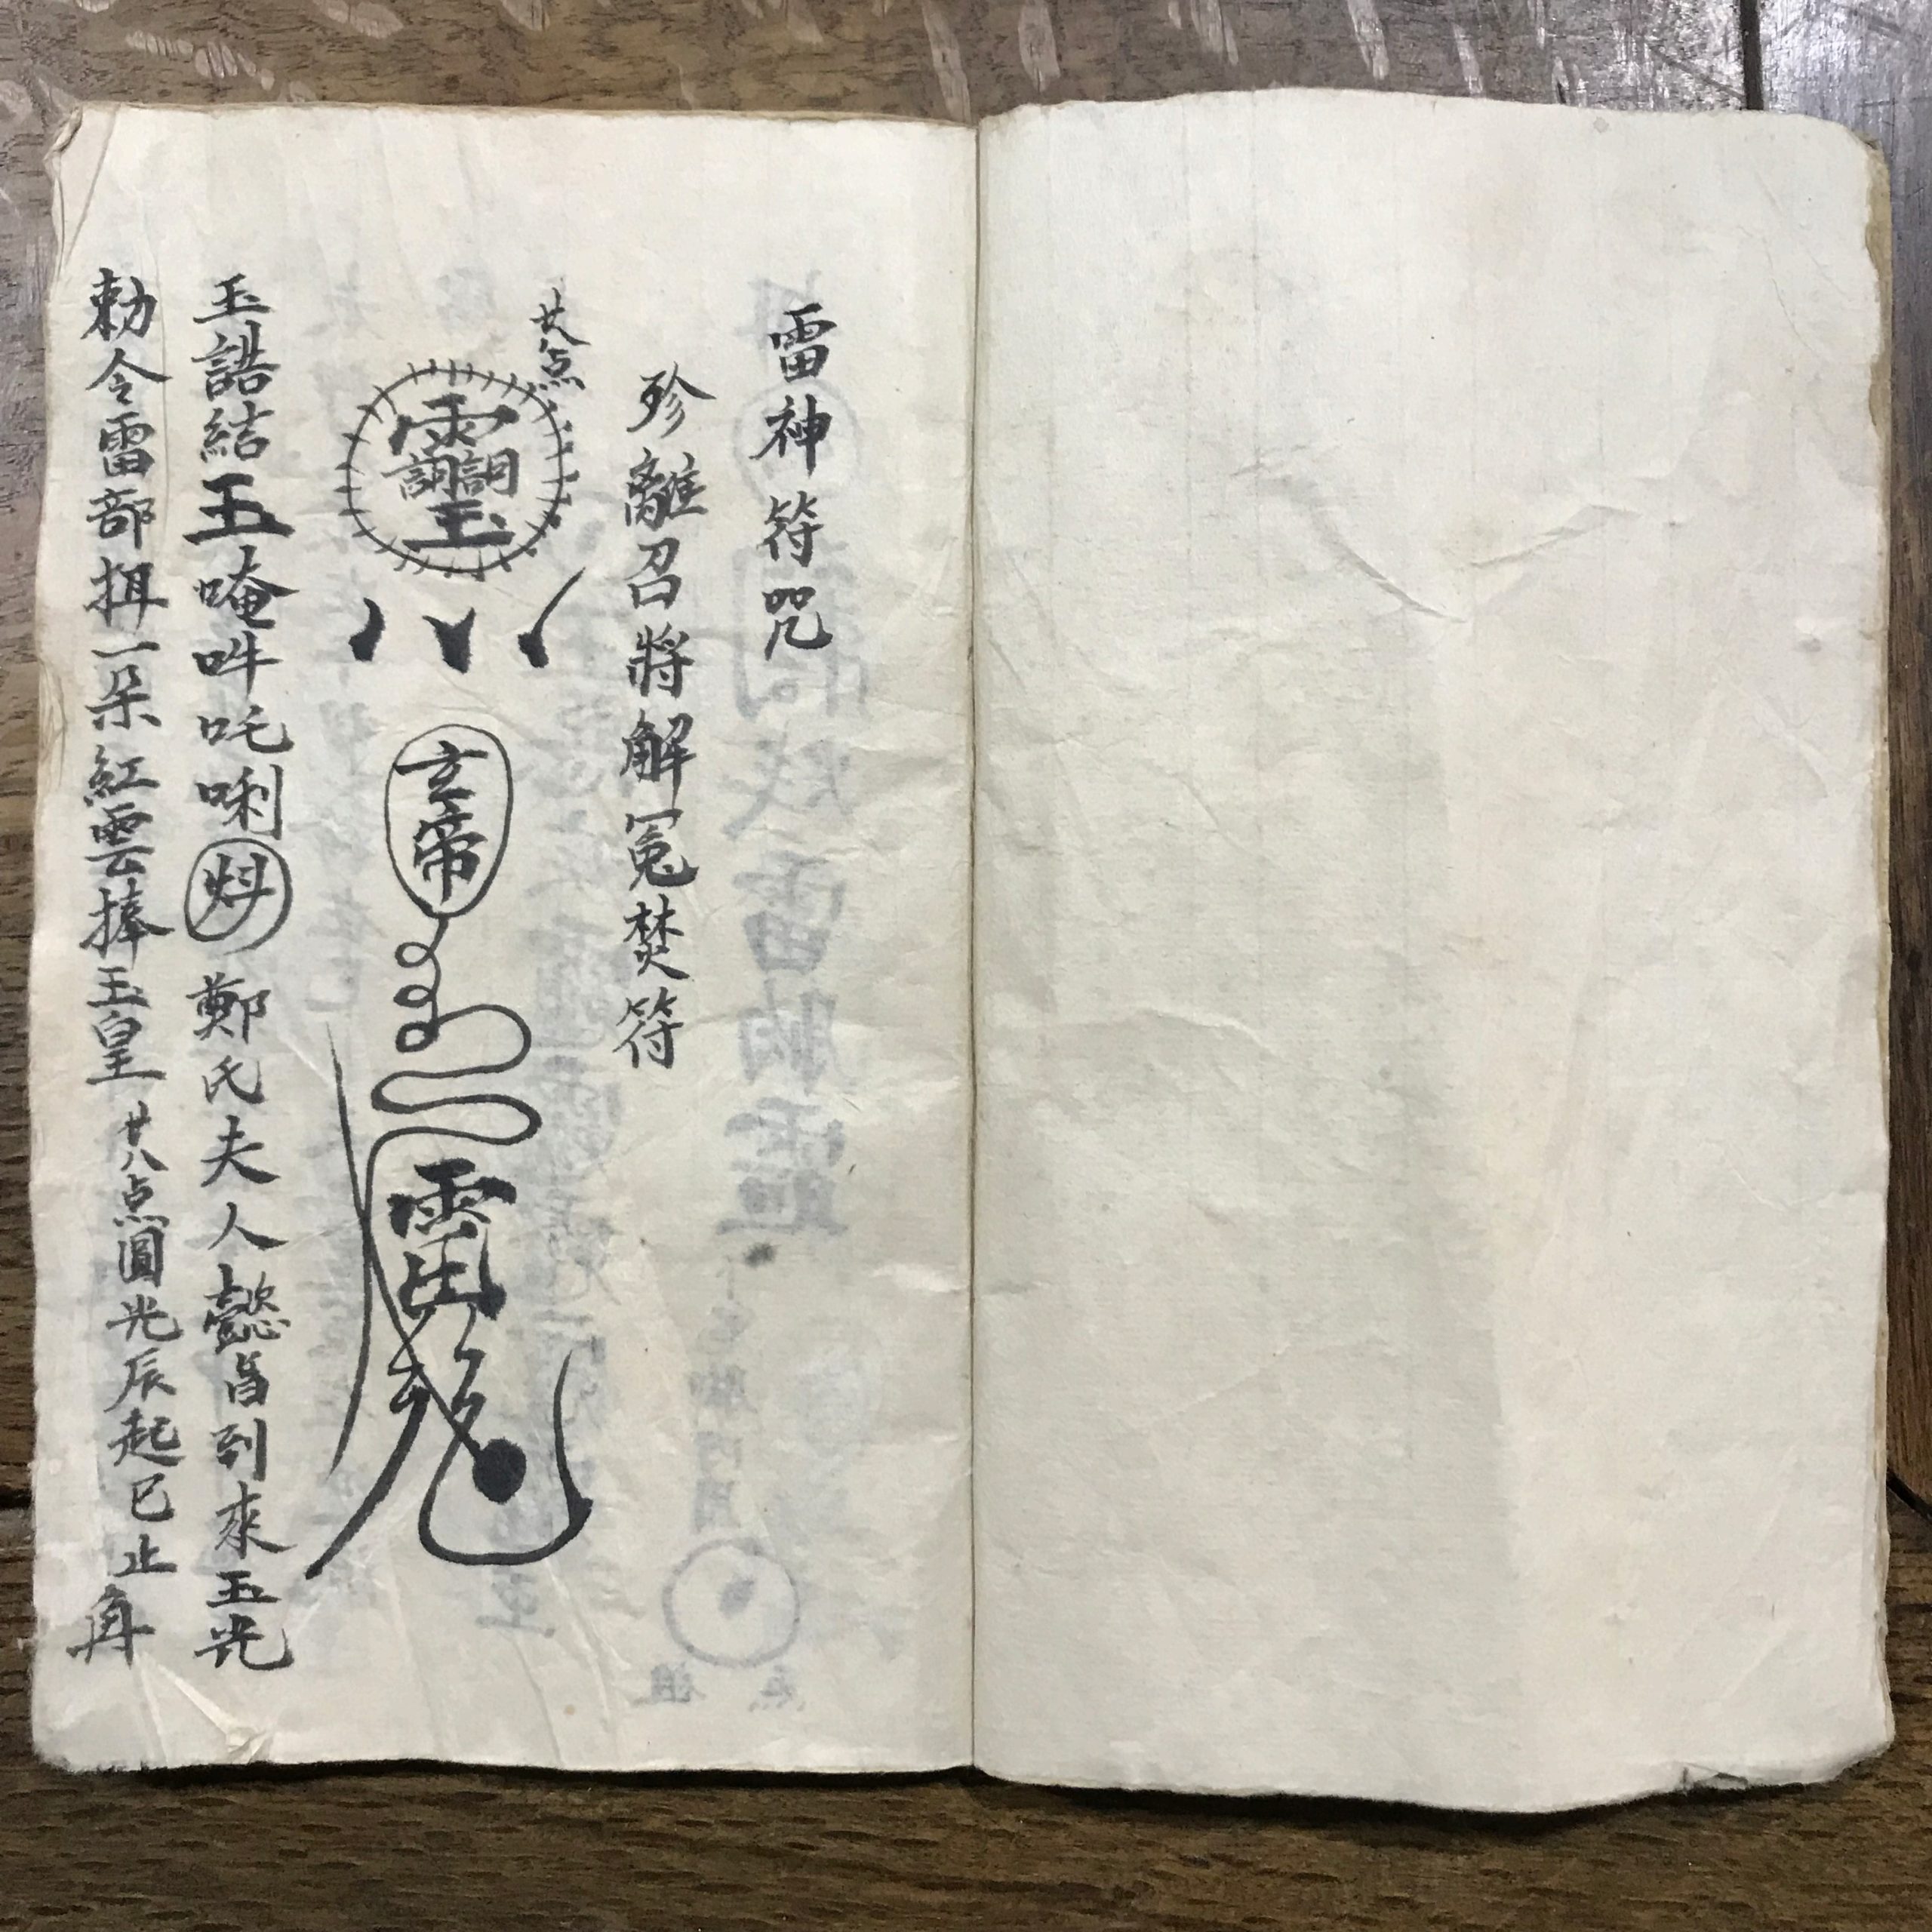 雷神符咒
殄離召將解冤焚符
廿八点
玄帝
玉誥結玉唵吽吒唎 鄭氏夫人懿旨到來玉光
勅令雷部揖一朵紅雲捧玉皇 廿八点圓光辰起巳止再